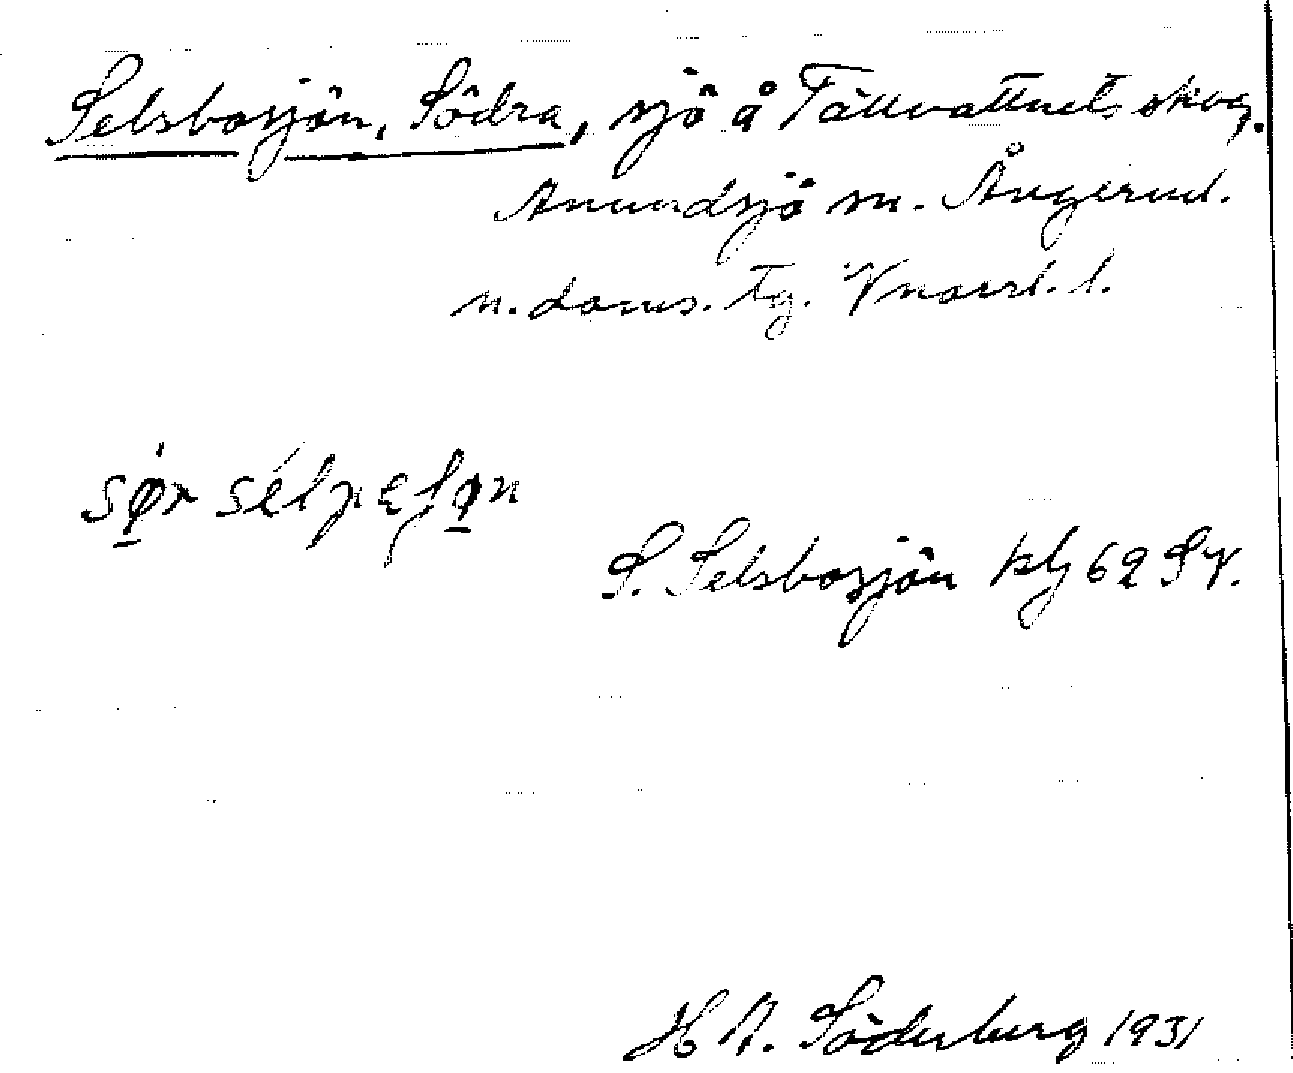 Selsbosjön, Södra, sjö å Tällvattnets skog.
Anundsjö sn. Ångerml.
n. doms. tg. Vnorrl. l.
sø̱r sélpɛʃø̱n
S. Selsbosjön kbj 62 SV.
H A. Söderberg 1931